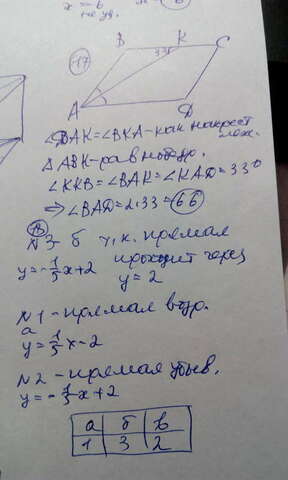 x = 6
не уд.
6
17
B K C
33°
A D
∠DAK=∠BKA-как накрест леж.
△ABK-равнобедр.
∠KKB=∠BAK=∠KAD=33°
⇒∠BAD=2·33=66
18
N3-б т.к. прямая
y=-1/5x+2 проходит через
y=2
N1-прямая возр.
а
y=1/5x-2
N2-прямая убыв.
y=-1/5x+2
а б в
1 3 2